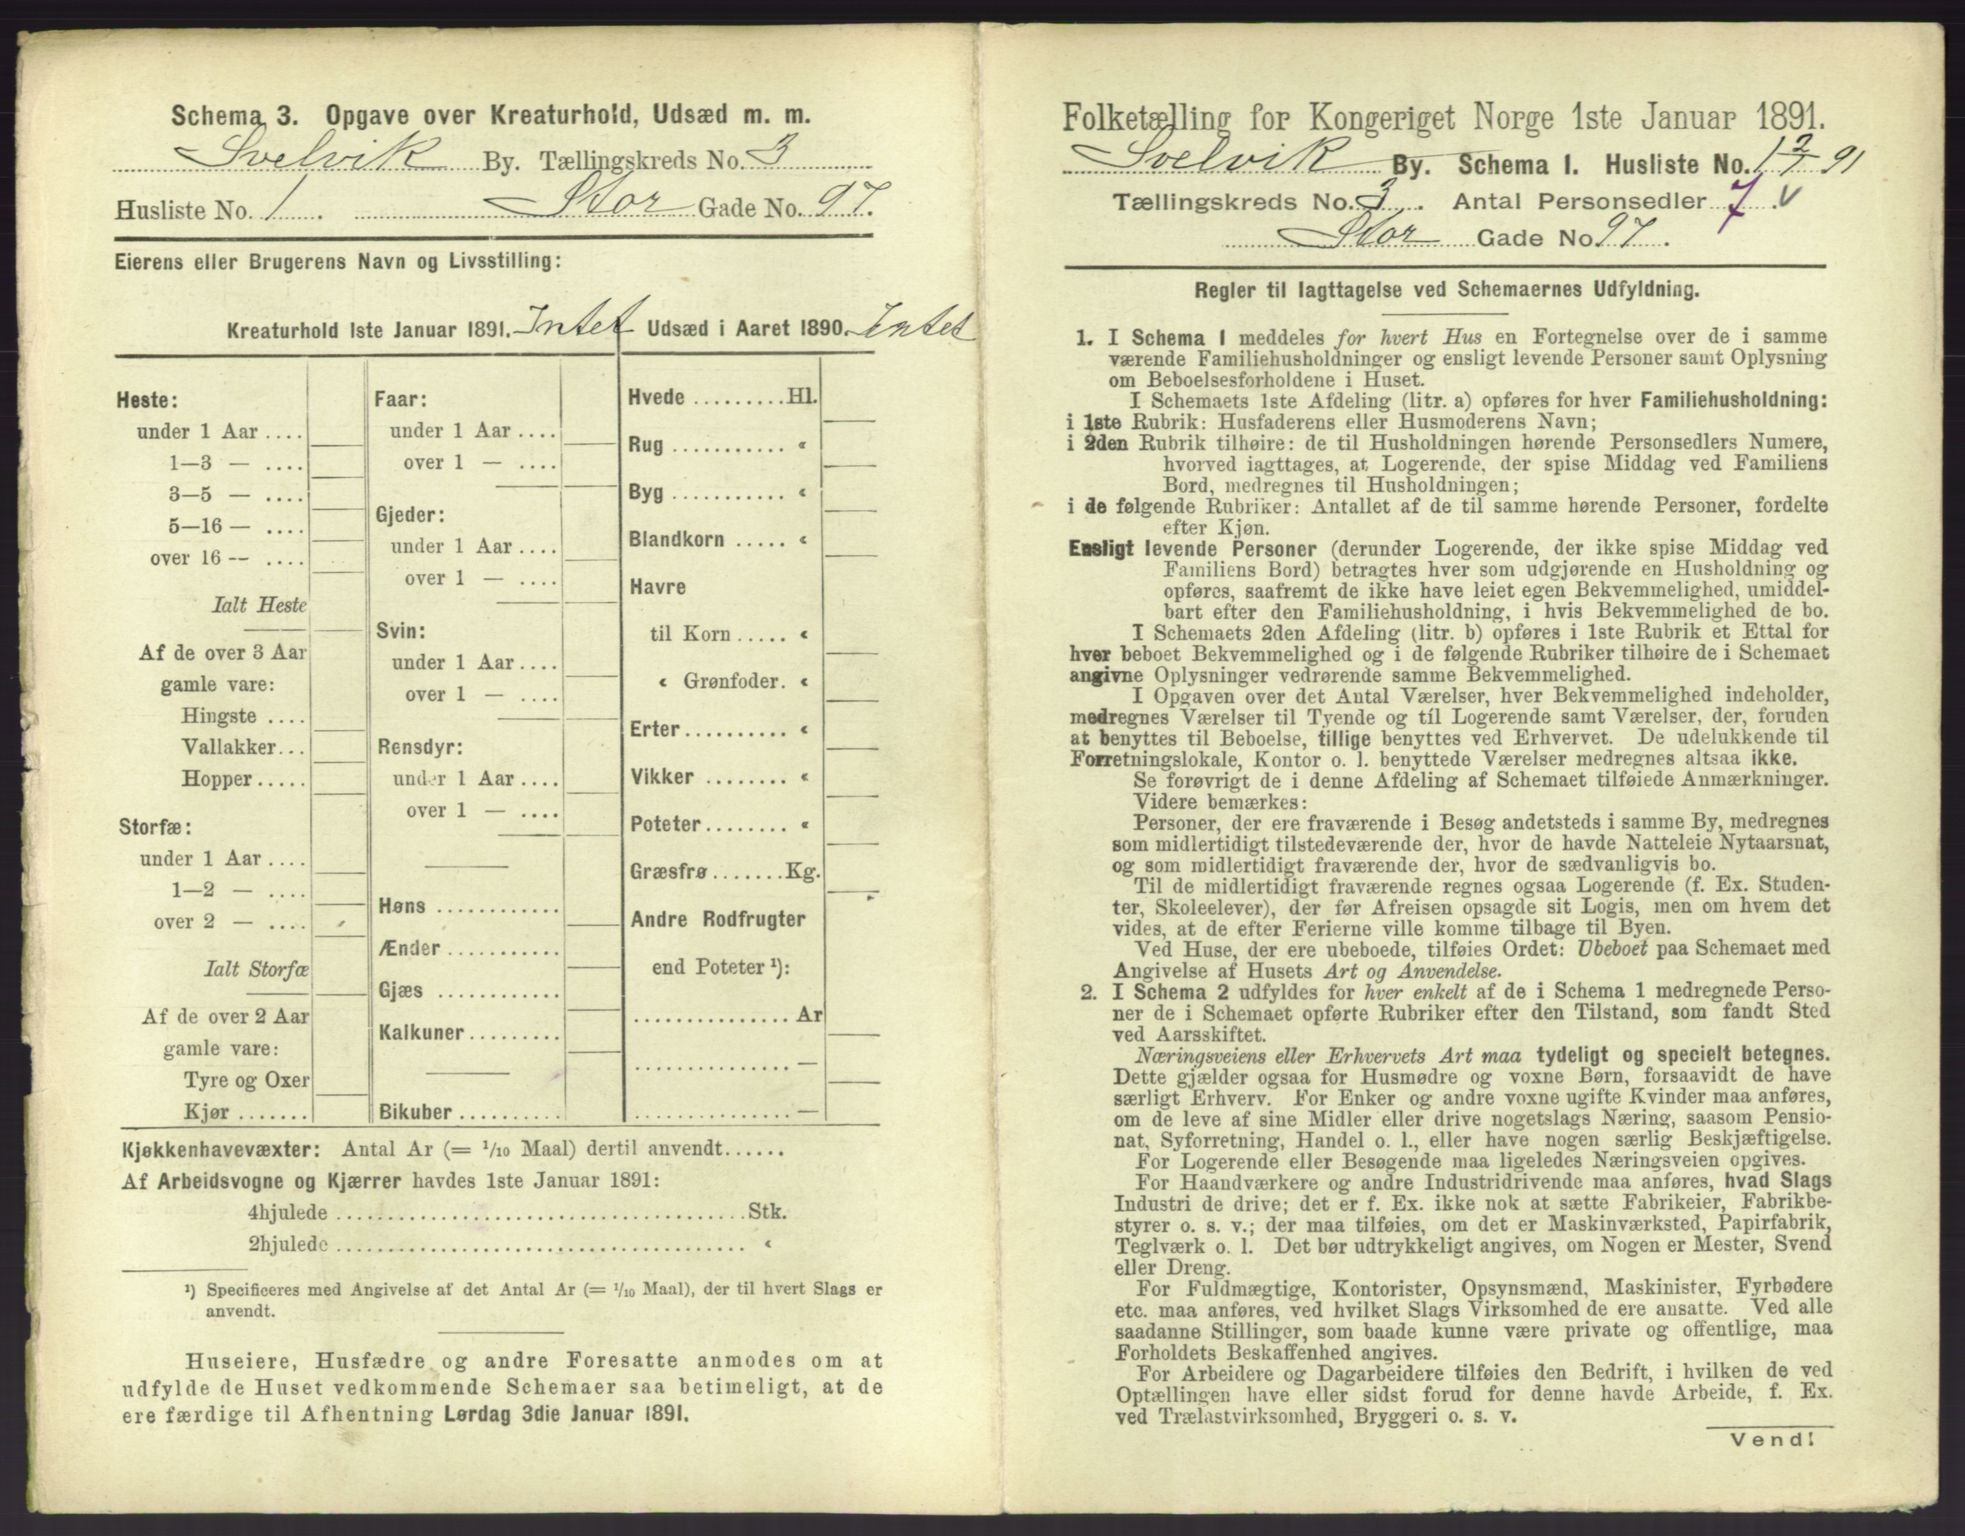 Schema 3. Opgave over Kreaturhold, Udsæd m. m.
Svelvik By. Tællingskreds No. 3
Husliste No. 1. Stor Gade No. 97.
Eierens eller Brugerens Navn og Livsstilling:
Kreaturhold 1ste Januar 1891. Intet
Heste:
under 1 Aar ....
1—3 — ....
3—5 — ....
5—16 — ....
over 16 -- ....
Ialt Heste
Af de over 3 Aar
gamle vare:
Hingste ....
Vallakker...
Hopper.....
Storfæ:
under 1 Aar ....
1—2 — ....
over 2 — ....
Ialt Storfæ
Af de over 2 Aar
gamle vare:
Tyre og Oxer
Kjør .......
Faar:
under 1 Aar ....
over 1 — ....
Gjeder:
under 1 Aar ....
over 1 — ....
Svin:
under 1 Aar ....
over 1 — ....
Rensdyr:
under 1 Aar ....
over 1 — ....
Høns ............
Ænder ...........
Gjæs ............
Kalkuner.........
Bikuber ..........
Udsæd i Aaret 1890. Intet
Hvede .........Hl.
Rug ........... «
Byg ........... «
Blandkorn ..... «
Havre
til Korn ..... «
« Grønfoder. «
Erter.......... «
Vikker ........ «
Poteter........ «
Græsfrø.......Kg.
Andre Rodfrugter
end Poteter ¹):
............... Ar
............... —
............... —
Kjøkkenhavevæxter: Antal Ar (= 1/10 Maal) dertil anvendt......
Af Arbeidsvogne og Kjærrer havdes 1ste Januar 1891:
4hjulede ........................................ Stk.
2hjulede ........................................ «
¹) Specificeres med Angivelse af det Antal Ar (= 1/10 Maal), der til hvert Slags er
anvendt.
Huseiere, Husfædre og andre Foresatte anmodes om at
udfylde de Huset vedkommende Schemaer saa betimeligt, at de
ere færdige til Afhentning Lørdag 3die Januar 1891.
Folketælling for Kongeriget Norge 1ste Januar 1891.
Svelvik By. Schema 1. Husliste No. 1 2/1 91
Tællingskreds No. 3. Antal Personsedler 7. v
Stor Gade No 97.
Regler til Iagttagelse ved Schemaernes Udfyldning.
1. I Schema 1 meddeles for hvert Hus en Fortegnelse over de i samme
værende Familiehusholdninger og ensligt levende Personer samt Oplysning
om Beboelsesforholdene i Huset.
I Schemaets 1ste Afdeling (litr. a) opføres for hver Familiehusholdning:
i 1ste Rubrik: Husfaderens eller Husmoderens Navn;
i 2den Rubrik tilhøire: de til Husholdningen hørende Personsedlers Numere,
hvorved iagttages, at Logerende, der spise Middag ved Familiens
Bord, medregnes til Husholdningen;
i de følgende Rubriker: Antallet af de til samme hørende Personer, fordelte
efter Kjøn.
Ensligt levende Personer (derunder Logerende, der ikke spise Middag ved
Familiens Bord) betragtes hver som udgjørende en Husholdning og
opføres, saafremt de ikke have leiet egen Bekvemmelighed, umiddel-
bart efter den Familiehusholdning, i hvis Bekvemmelighed de bo.
I Schemaets 2den Afdeling (litr. b) opføres i 1ste Rubrik et Ettal for
hver beboet Bekvemmelighed og i de følgende Rubriker tilhøire de i Schemaet
angivne Oplysninger vedrørende samme Bekvemmelighed.
I Opgaven over det Antal Værelser, hver Bekvemmelighed indeholder,
medregnes Værelser til Tyende og til Logerende samt Værelser, der, foruden
at benyttes til Beboelse, tillige benyttes ved Erhvervet. De udelukkende til
Forretningslokale, Kontor o. l. benyttede Værelser medregnes altsaa ikke.
Se forøvrigt de i denne Afdeling af Schemaet tilføiede Anmærkninger.
Videre bemærkes:
Personer, der ere fraværende i Besøg andetsteds i samme By, medregnes
som midlertidigt tilstedeværende der, hvor de havde Natteleie Nytaarsnat,
og som midlertidigt fraværende der, hvor de sædvanligvis bo.
Til de midlertidigt fraværende regnes ogsaa Logerende (f. Ex. Studen-
ter, Skoleelever), der før Afreisen opsagde sit Logis, men om hvem det
vides, at de efter Ferierne ville komme tilbage til Byen.
Ved Huse, der ere ubeboede, tilføies Ordet: Ubeboet paa Schemaet med
Angivelse af Husets Art og Anvendelse.
2. I Schema 2 udfyldes for hver enkelt af de i Schema 1 medregnede Perso-
ner de i Schemaet opførte Rubriker efter den Tilstand, som fandt Sted
ved Aarsskiftet.
Næringsveiens eller Erhvervets Art maa tydeligt og specielt betegnes.
Dette gjælder ogsaa for Husmødre og voxne Børn, forsaavidt de have
særligt Erhverv. For Enker og andre voxne ugifte Kvinder maa anføres,
om de leve af sine Midler eller drive nogetslags Næring, saasom Pensio-
nat, Syforretning, Handel o. l., eller have nogen særlig Beskjæftigelse.
For Logerende eller Besøgende maa ligeledes Næringsveien opgives.
For Haandværkere og andre Industridrivende maa anføres, hvad Slags
Industri de drive; det er f. Ex. ikke nok at sætte Fabrikeier, Fabrikbe-
styrer o. s. v.; der maa tilføies, om det er Maskinværksted, Papirfabrik,
Teglværk o. l. Det bør udtrykkeligt angives, om Nogen er Mester, Svend
eller Dreng.
For Fuldmægtige, Kontorister, Opsynsmænd, Maskinister, Fyrbødere
etc. maa anføres, ved hvilket Slags Virksomhed de ere ansatte. Ved alle
saadanne Stillinger, som baade kunne være private og offentlige, maa
Forholdets Beskaffenhed angives.
For Arbeidere og Dagarbeidere tilføies den Bedrift, i hvilken de ved
Optællingen have eller sidst forud for denne havde Arbeide, f. Ex.
ved Trælastvirksomhed, Bryggeri o. s. v.
Vend!